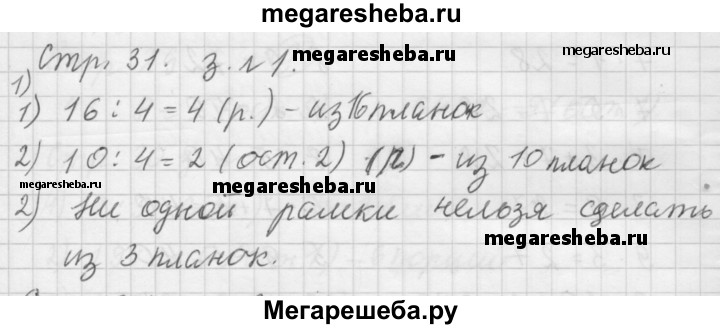 megaresheba.ru
Стр. 31. З. №1.
megaresheba.ru
megaresheba.ru
1)
1) 16 : 4 = 4 (р.) - из 16 планок
2) 10 : 4 = 2 (ост. 2) (р.) - из 10 планок
megaresheba.ru
megaresheba.ru
2) Ни одной рамки нельзя сделать
megaresheba.ru
из 3 планок.
Мегарешеба.ру